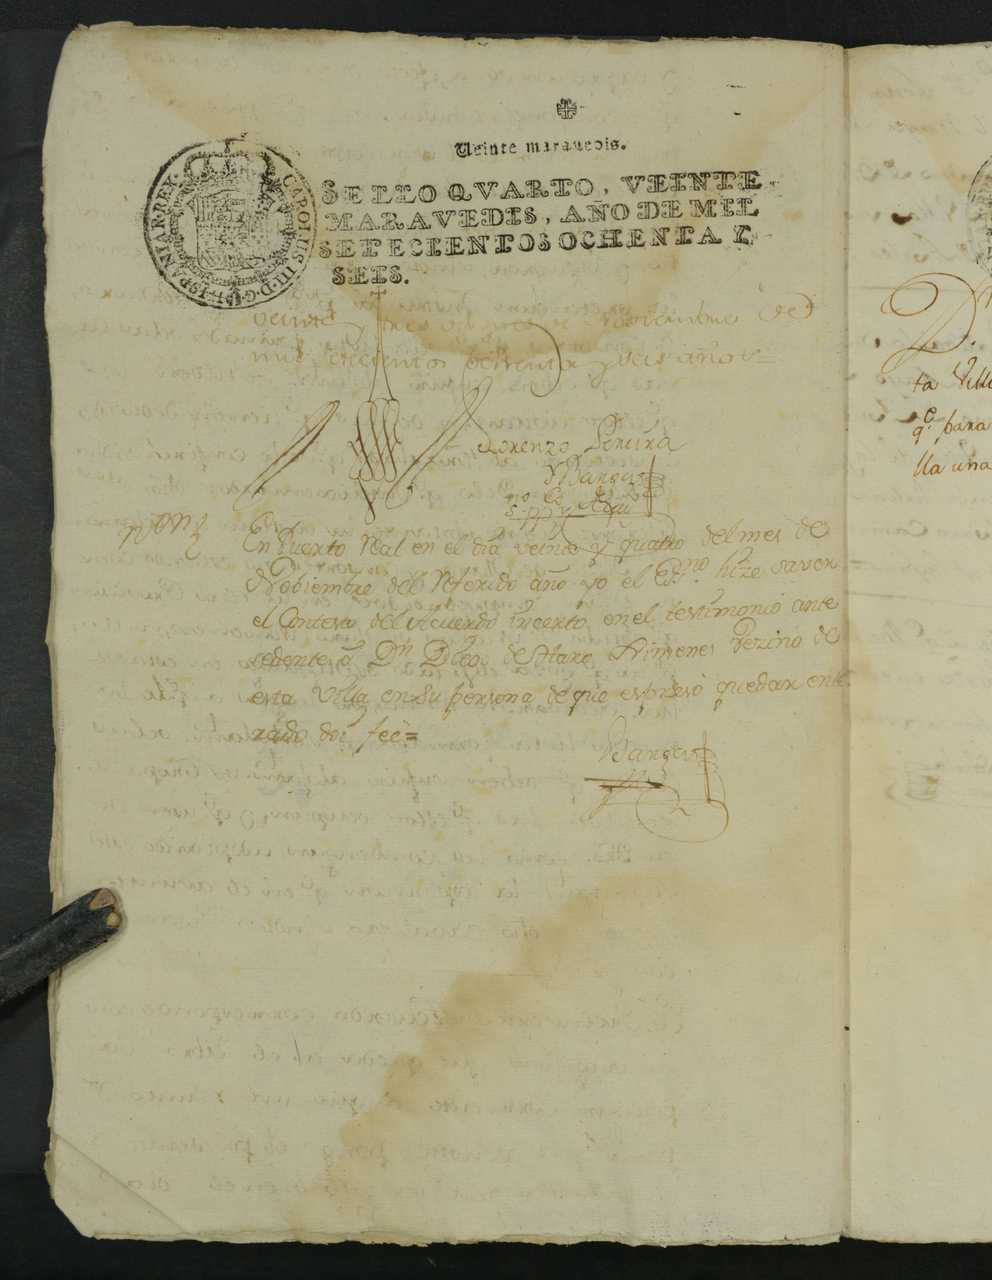 Veinte maravedis.
SELLO QVARTO, VEINTE
MARAVEDIS, AÑO DE MIL
SETECIENTOS OCHENTA Y
SEIS.
CAROLUS III. D. G. HISPANIAR. REX.
veinte y tres de Noviembre de
mil setecientos ochenta y seis años =
Lorenzo Pereira
Vargas
Noti
En Puerto Real en el dia veinte y quatro del mes de
Nobiembre del Referido año yo el Es.no hize saver
el Contesto del Acuerdo incerto en el testimonio ante
sedente a Dn Diego de Haro Ximenes Vezino de
esta Villa en su persona de que espresó quedar ente
rado doi feè=
Vargas
D.
ta Vill
qe para
lla una